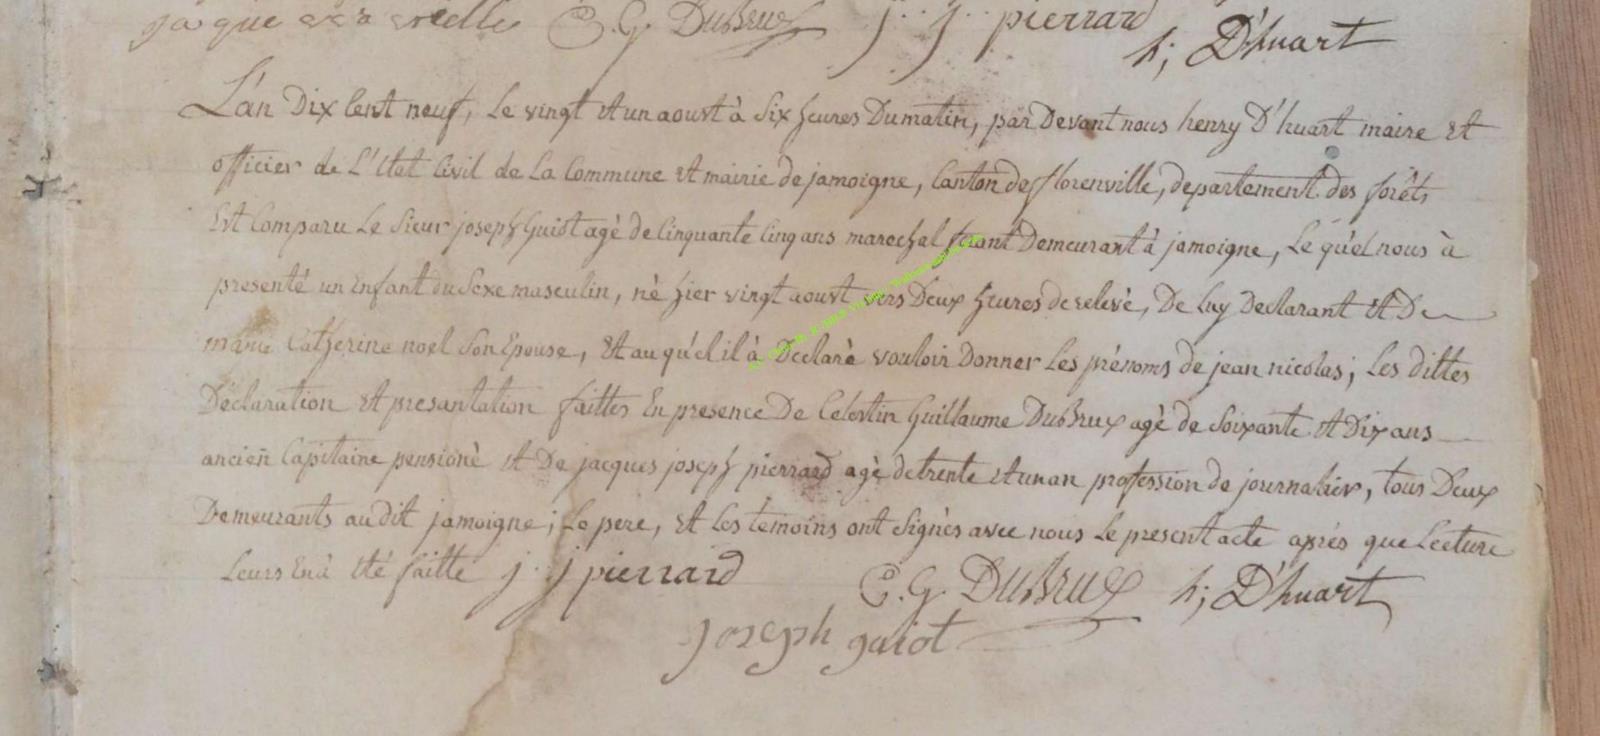 jacque exa vielle C.G. DuBrux j. j. pierrard
h; D'huart
L'an Dix Cent neuf, Le vingt et un aoust à Six heures Du matin, par Devant nous henry D'huart maire et
officier de L'Etat Civil de La Commune et mairie de jamoigne, Canton de florenville, departement des forêts
Est Comparu Le Sieur joseph Guiot agé de Cinquante Cinq ans marechal ferant Demeurant à jamoigne, Le quel nous à
presenté un Enfant du Sexe masculin, nè hier vingt aoust vers Deux heures de relevè, De Luy Declarant et De
marie Catherine noel Son Epouse, et au qu'el il à Declarè vouloir Donner Les prénoms de jean nicolas; Les dittes
Déclaration et presantation faittes En presence De Celestin Guillaume DuBrux agè de Soixante et Dix ans
ancien Capitaine pensionè et De jacques joseph pierrard agè de trente et un an profession de journalier, tous Deux
Demeurants audit jamoigne; Le pere, et Les temoins ont Signès avec nous Le present acte aprés que Lecture
Leurs En à été faitte j. j pierrard C.G. DuBrux h; D'huart
joseph guiot